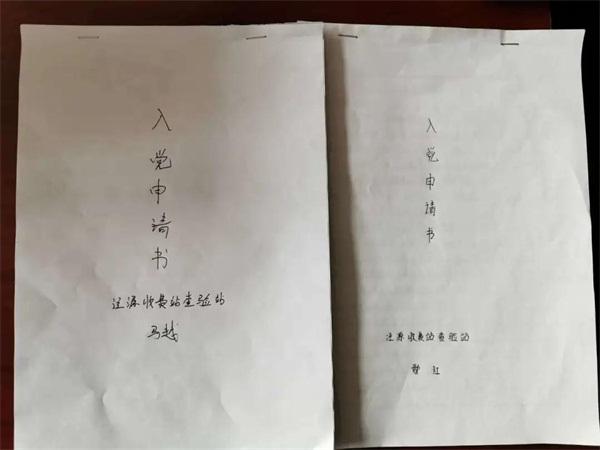 入党申请书
泾源收费站查验站
马越
入党申请书
泾源收费站查验站
红